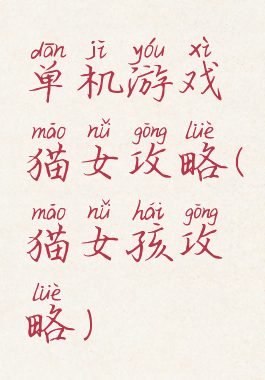 dān jī yóu xì
单机游戏
māo nǚ gōng lüè
猫女攻略(
māo nǚ hái gōng
猫女孩攻
lüè
略)